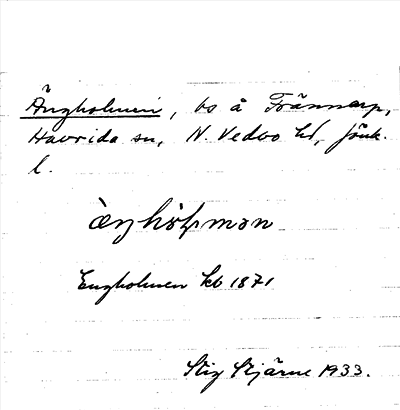 Ängholmen, bs å Frännarp,
Haurida sn, N. Vedbo hd, Jönk.
l.
Engholmen kb 1871
Stig Stjärne 1933.